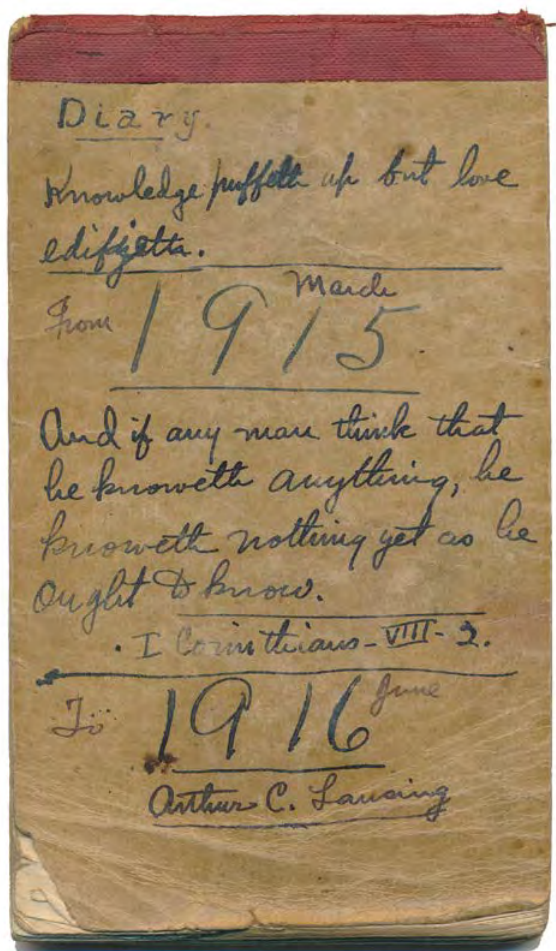 Diary.
Knowledge puffeth up but love
edifyeth.
March
From 1915.
And if any man think that
he knoweth anything, he
knoweth nothing yet as he
ought to know.
. I Corinthians - VIII - 2.
To 1916 June
Arthur C. Lansing